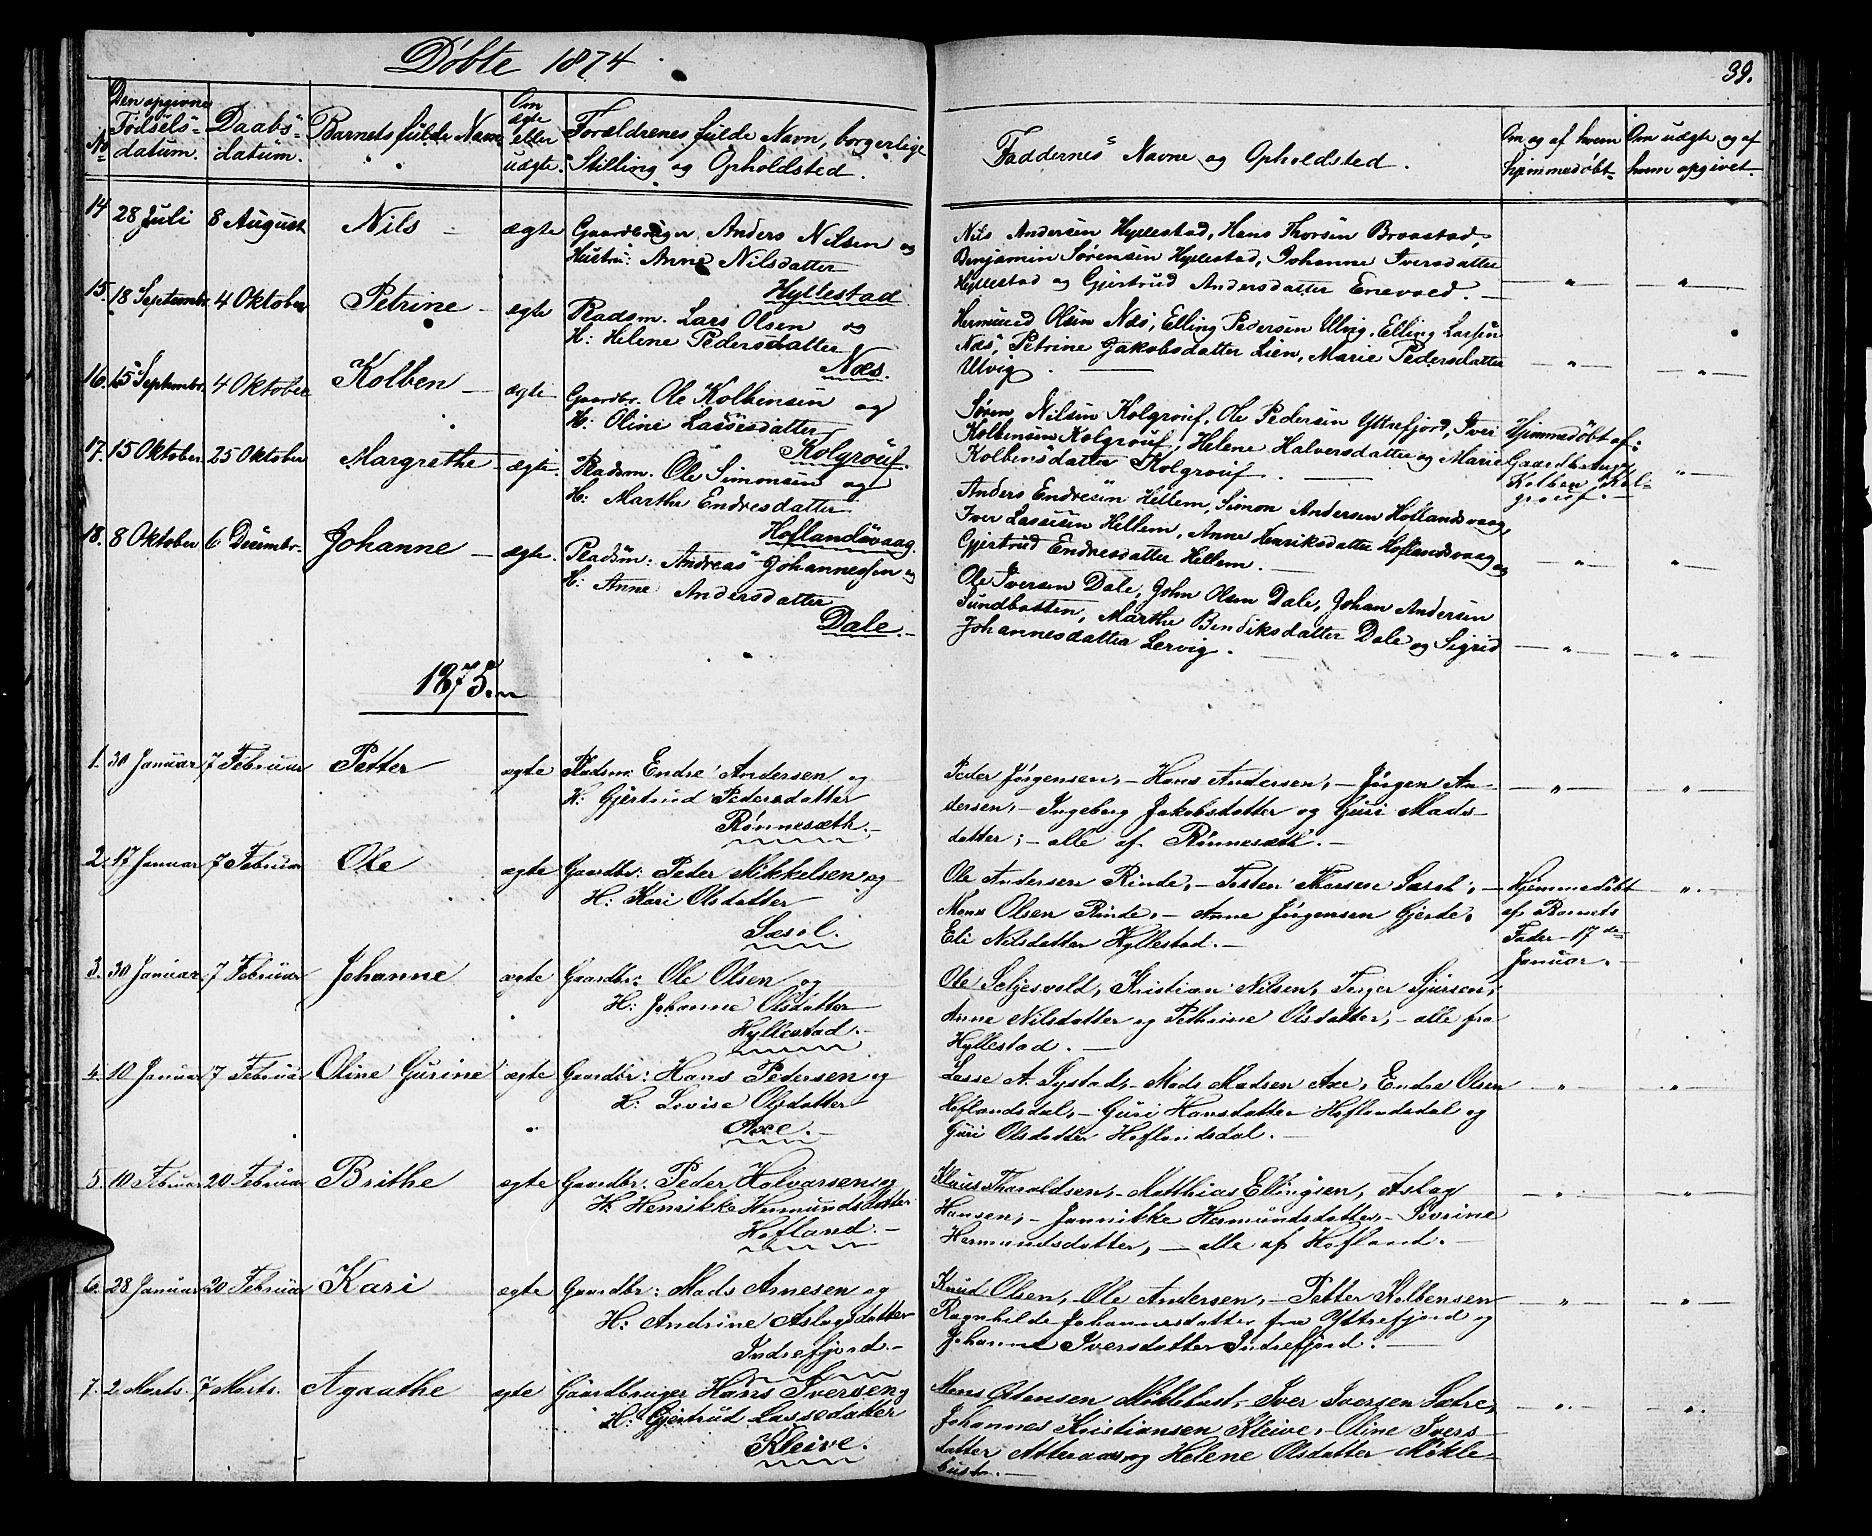 Døbte 1874
39.
No
Den opgivne Fødsels-datum.
Daabs-datum.
Barnets fulde Navn
Om ægte eller uægte.
Forældrenes fulde Navn, borgerlige Stilling og Opholdsted.
Faddernes Navne og Opholdsted.
Om og af hvem hjemmedøbt
Om uægte og af hvem opgivet.
14 28 Juli 8 August Nils – ægte Gaardbruger Anders Nilsen og
Hustru: Anne Nilsdatter
Hyllestad
Nils Andersen Hyllestad, Hans Thorsen Braastad,
Benjamin Sørensen Hyllestad, Johanne Iversdatter
Hyllestad og Gjertrud Andersdatter Enevold. – " – – " –
15. 18 Septembr 4 Oktober Petrine – ægte Pladsm. Lars Olsen og
H: Helene Pedersdatter
Næs.
Hermund Olsen Næs, Elling Pedersen Ulvig, Elling Larsen
Næs, Petrine Jakobsdatter Lien, Marie Pedersdatter
Ulvig. – " – – " –
16. 15 Septembr. 4 Oktober Kolben – ægte Gaardbr. Ole Kolbensen og
H: Oline Lassesdatter
Kolgrouf.
Søren Nilsen Kolgrouf, Ole Pedersen Yttrefjord, Iver
Kolbensen Kolgrouf, Helene Halversdatter og Marie
Kolbensdatter Kolgrouf.
Hjemmedøbt af
Gaardbruger
Kolben Kol-
grouf. – – " –
17. 15 Oktober 25 Oktober Margrethe – ægte. Pladsm. Ole Simonsen og
H: Marthe Endresdatter
Hoflandsvaag.
Anders Endresen Hellem, Simon Andersen Hoflandsvaag,
Iver Lassesen Hellem, Anne Henriksdatter Hoflandsvaag og
Gjertrud Endresdatter Hellem. – – " – – " –
18. 8 Oktober 6 Decembr. Johanne – ægte. Pladsm: Andreas Johannessen og
H: Anne Andersdatter
Dale. –
Ole Iversen Dale, John Olsen Dale, Johan Andersen
Sundbotten, Marthe Bendiksdatter Dale og Sigrid
Johannesdatter Lervig. – – " – – " –
1875.
1. 30 Januar 7 Februar Petter ægte Pladsm: Endre Andersen og
H: Gjertrud Pedersdatter
Rønnesæth. –
Peder Jørgensen, – Hans Andersen, – Jørgen An-
dersen, – Ingeborg Jakobsdatter og Guri Mads-
datter; – alle af Rønnesæth. – – " – – " –
2. 17 Januar 7 Februar Ole ægte Gaardbr: Peder Mikkelsen og
H: Kari Olsdatter
Sæsol.
Ole Andersen Rinde, – Torsten Thorsen Sæsol, –
Mons Olsen Rinde, – Anne Jørgensen Gjerde,
Eli Nilsdatter Hyllestad. –
Hjemmedøbt
af Barnets
Fader – 17de
Januar. – – " –
3. 30 Januar 7 Februar Johanne ægte Gaardbr: Ole Olsen og
H: Johanne Olsdatter
Hyllestad. –
Ole Seljesvold, Kristian Nilsen, Torger Sjursen,
Anne Nilsdatter og Pethrine Olsdatter, – alle fra
Hyllestad. –
4. 10 Januar 7 Februar Oline Gurine ægte Gaardbr: Hans Pedersen og
H: Lovise Olsdatter
Axe. –
Lasse A. Systad, – Mads Madsen Axe, Endre Olsen
Hoflandsdal, – Guri Hansdatter Hoflandsdal og
Guri Olsdatter Hoflandsdal. – – " – – " –
5. 10 Februar 20 Februar Brithe ægte Gaardbr: Peder Halvorsen og
H: Henrikke Hermundsdatter
Hofland. –
Klaus Tharaldsen, – Matthias Ellingsen, Aslag
Hansen, – Jannikke Hermundsdatter, – Severine
Hermundsdatter, – alle af Hofland. – – " – – " –
6. 28 Januar 20 Februar Kari ægte Gaardbr: Mads Arnesen og
H: Andrine Aslagsdatter
Indrefjord. –
Knud Olsen, Ole Andersen, – Petter Kolbensen
Ragnhilde Johannesdatter fra Yttrefjord og
Johanne Iversdatter Indrefjord. – – " – – " –
7. 2 Marts. 7 Marts. Agaathe ægte Gaardbruger Hans Iversen og
H: Gjertrud Lassedatter
Kleive.
Mons Østensen Møklebust, Iver Iversen Sætre,
Johannes Kristiansen Kleive, – Oline Ivers-
datter Atteraas og Helene Olsdatter Møkle-
bust. – – " – – " –